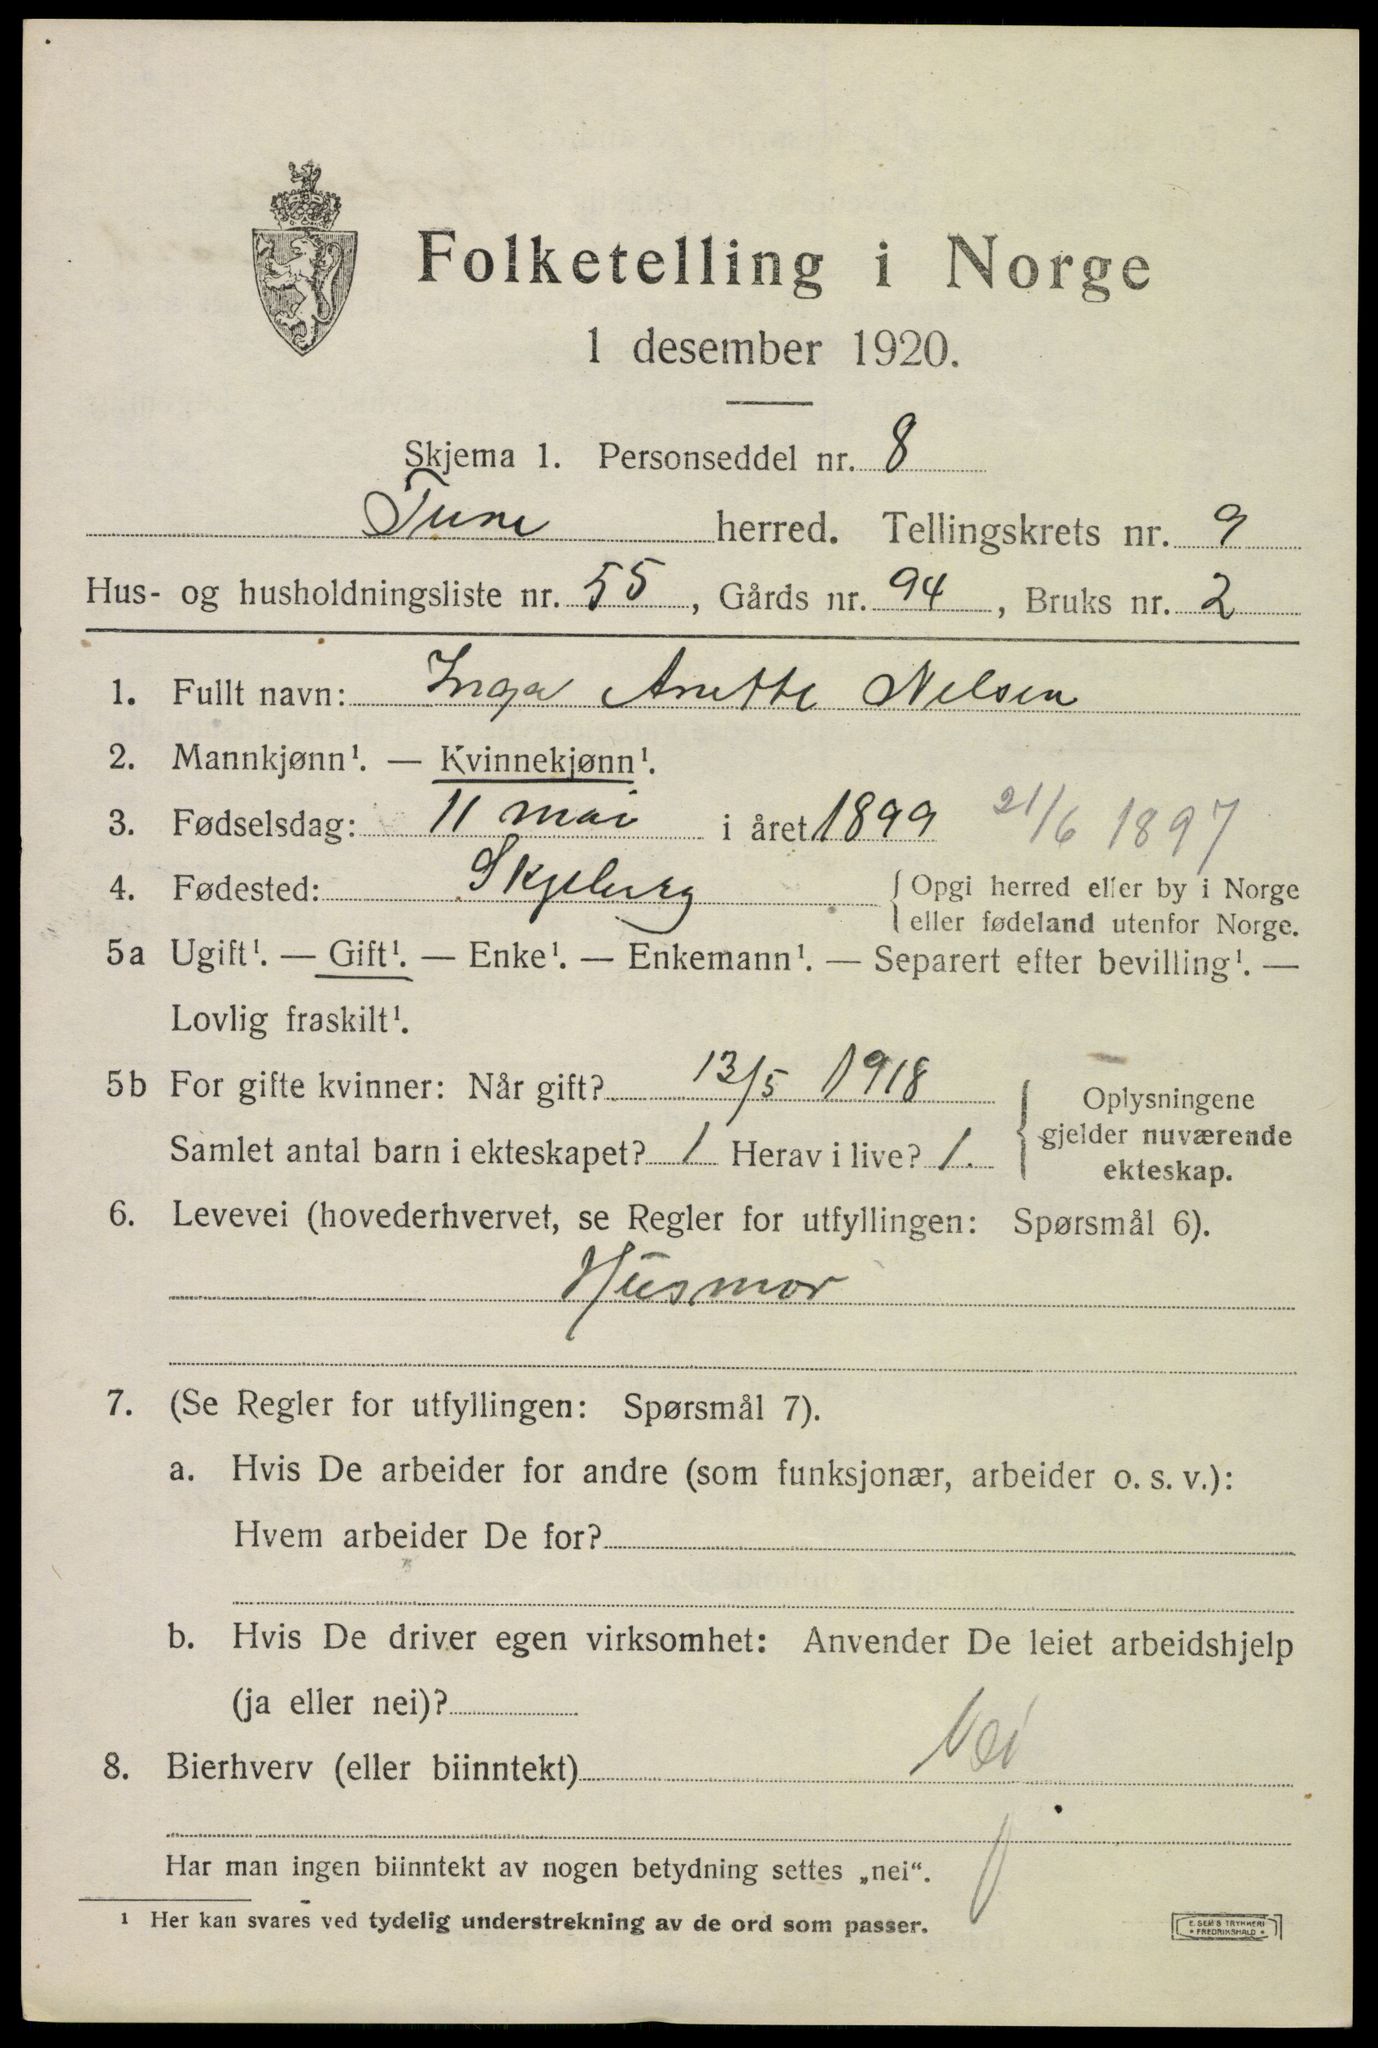 Folketelling i Norge
1 desember 1920.
Skjema 1. Personseddel nr. 8
Tune herred. Tellingskrets nr. 9
Hus- og husholdningsliste nr. 55, Gårds nr. 94, Bruks nr. 2
1. Fullt navn: Inga Anette Nelsen
2. Mannkjønn¹. — Kvinnekjønn¹.
3. Fødselsdag: 11 mai i året 1899 21/6 1897
4. Fødested: Skjeberg { Opgi herred eller by i Norge
eller fødeland utenfor Norge.
5a Ugift¹. — Gift¹. — Enke¹. — Enkemann¹. — Separert efter bevilling¹. —
Lovlig fraskilt¹.
5b For gifte kvinner: Når gift? 13/5 1918
Samlet antal barn i ekteskapet? 1 Herav i live? 1.
{ Oplysningene
gjelder nuværende
ekteskap.
6. Levevei (hovederhvervet, se Regler for utfyllingen: Spørsmål 6).
Husmor
7. (Se Regler for utfyllingen: Spørsmål 7).
a. Hvis De arbeider for andre (som funksjonær, arbeider o. s. v.):
Hvem arbeider De for?
b. Hvis De driver egen virksomhet: Anvender De leiet arbeidshjelp
(ja eller nei)?
8. Bierhverv (eller biinntekt) Nei
Har man ingen biinntekt av nogen betydning settes „nei“.
¹ Her kan svares ved tydelig understrekning av de ord som passer.
E. SEM'S TRYKKERI
* FREDRIKSHALD *